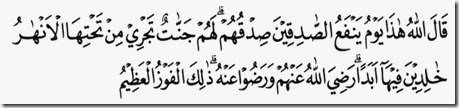 قَالَ اللّٰهُ هٰذَا يَوْمُ يَنْفَعُ الصّٰدِقِيْنَ صِدْقُهُمْ ۗ لَهُمْ جَنّٰتٌ تَجْرِيْ مِنْ تَحْتِهَا الْاَنْهٰرُ
خٰلِدِيْنَ فِيْهَآ اَبَدًا ۗ رَضِيَ اللّٰهُ عَنْهُمْ وَرَضُوْا عَنْهُ ۗ ذٰلِكَ الْفَوْزُ الْعَظِيْمُ